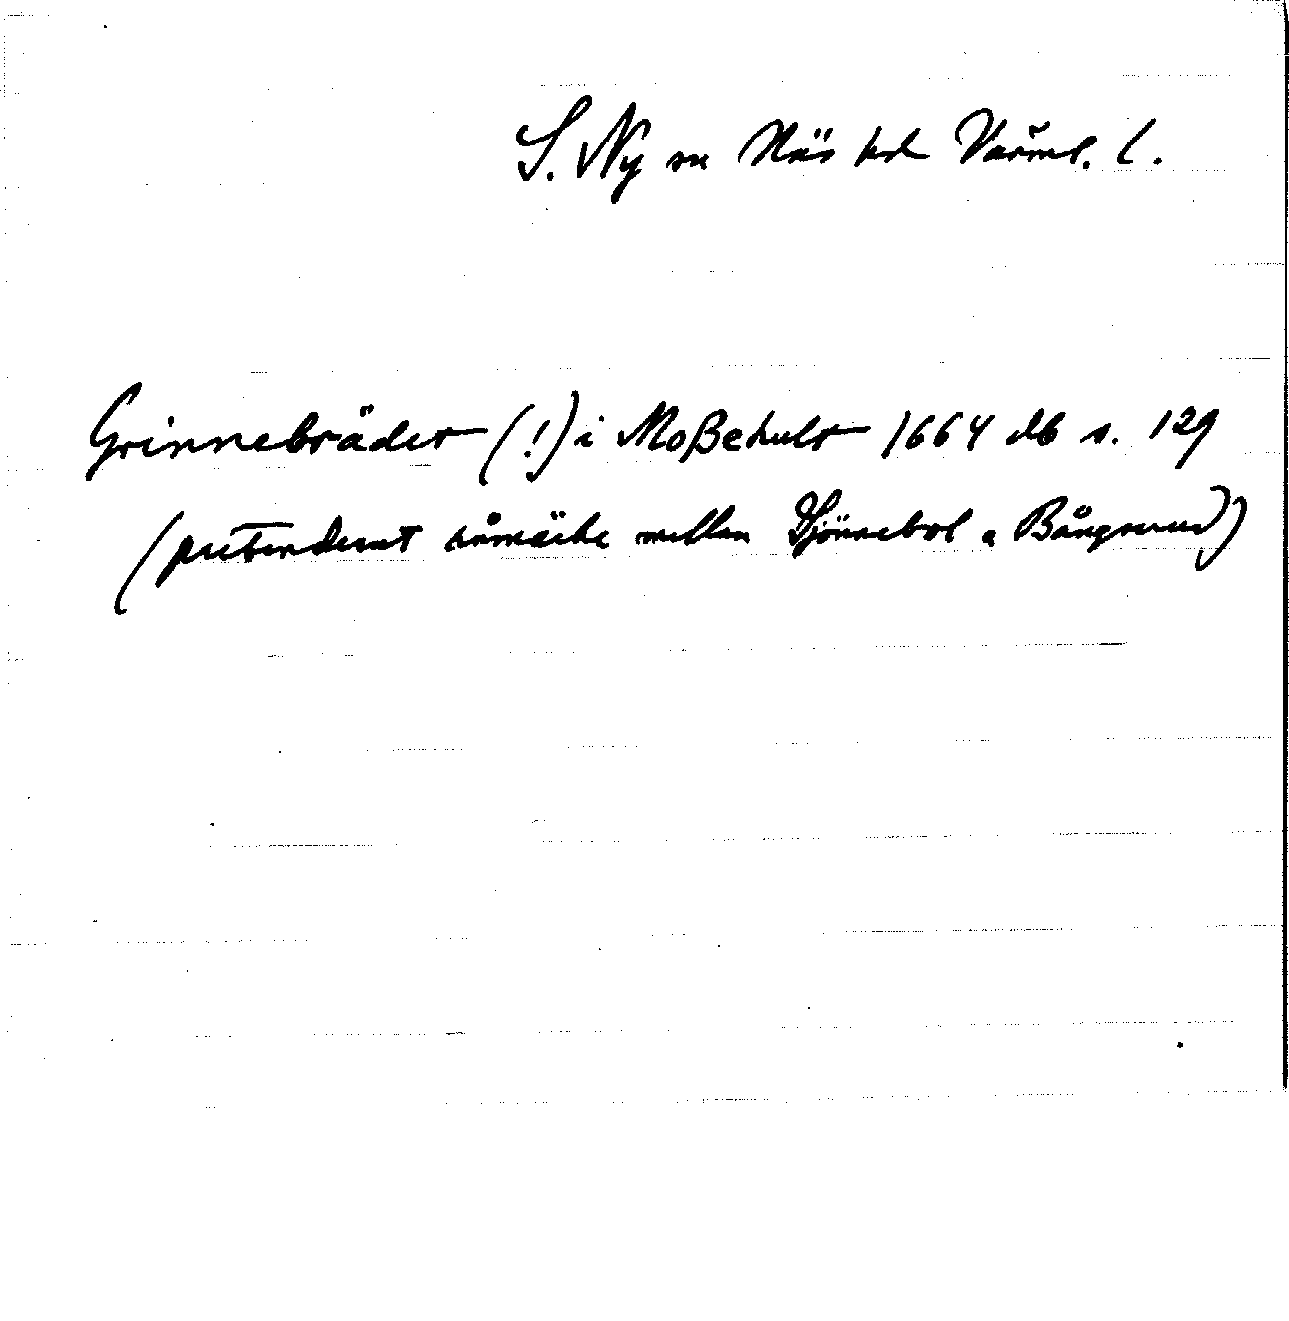 S. Ny sn Näs hd Värml. l.
Grinnebrädet (!) i Moßehult 1664 db s. 129
(putenderat råmärke mellan Djönnebol o Bångerud)